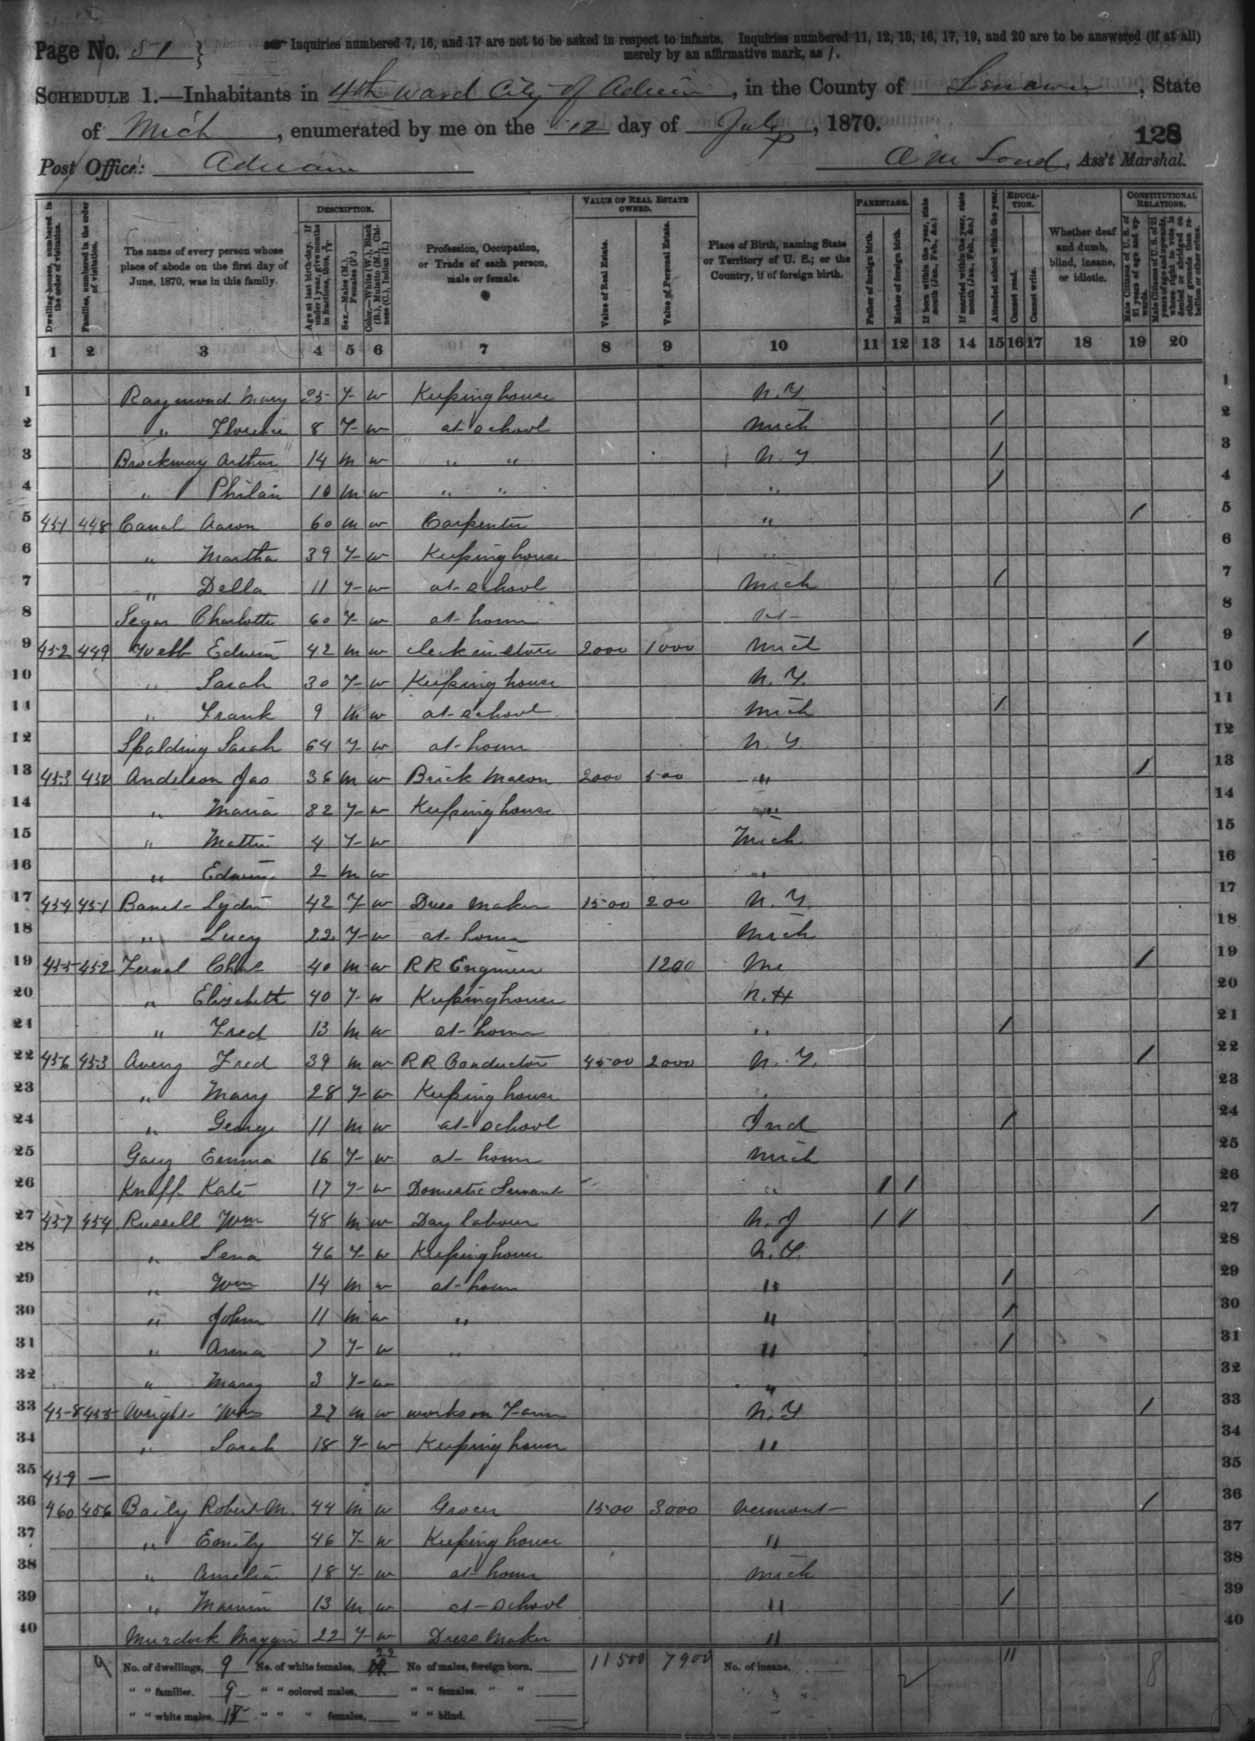 Page No. 51 } Inquiries numbered 7, 16, and 17 are not to be asked in respect to infants. Inquiries numbered 11, 12, 15, 16, 17, 19, and 20 are to be answered (if at all)
merely by an affirmative mark, as /.
SCHEDULE 1.—Inhabitants in 4th Ward City of Adrian, in the County of Lenawee, State
of Mich, enumerated by me on the 12 day of July, 1870.
128
Post Office: Adrian A M Loud, Ass't Marshal.
DESCRIPTION. VALUE OF REAL ESTATE OWNED. PARENTAGE. EDUCATION. CONSTITUTIONAL RELATIONS.
Dwelling-houses, numbered in the order of visitation.
Families, numbered in the order of visitation.
The name of every person whose place of abode on the first day of June, 1870, was in this family.
Age at last birth-day. If under 1 year, give months in fractions, thus,
Sex.—Males (M.), Females (F.)
Color.—White (W.), Black (B.), Mulatto (M.), Chinese (C.), Indian (I.)
Profession, Occupation, or Trade of each person, male or female.
Value of Real Estate.
Value of Personal Estate.
Place of Birth, naming State or Territory of U. S.; or the Country, if of foreign birth.
Father of foreign birth.
Mother of foreign birth.
If born within the year, state month (Jan., Feb., &c.)
If married within the year, state month (Jan., Feb., &c.)
Attended school within the year.
Cannot read.
Cannot write.
Whether deaf and dumb, blind, insane, or idiotic.
Male Citizens of U. S. of 21 years of age and upwards.
Male Citizens of U. S. of 21 years of age and upwards, whose right to vote is denied or abridged on other grounds than rebellion or other crime.
1 2 3 4 5 6 7 8 9 10 11 12 13 14 15 16 17 18 19 20
1 Raymond Mary F w Keeping house N.Y. 1
2 " Florence 8 F w at school Mich / 2
3 Brockway Arthur 14 m w " " N.Y / 3
4 " 10 m w " " " / 4
5 451 448 Aaron 60 m w Carpenter " / 5
6 " Martha 39 F w Keeping house " 6
7 " Della 11 F w at school Mich / 7
8 Charlotte 60 F w at home 8
9 452 449 Webb Edwin 42 m w Clerk in Store 2000 1000 Mich / 9
10 " Sarah 30 F w Keeping house N.Y. 10
11 " Frank 9 m w at school Mich / 11
12 Spalding Sarah 64 F w at home N.Y. 12
13 453 450 Anderson Jas 36 m w Brick Mason 2000 500 " / 13
14 " Maria 32 F w Keeping house " 14
15 " Mattie 4 F w Mich 15
16 " Edwin 2 m w " 16
17 454 451 Lydia 42 F w Dress Maker 1500 200 N.Y. 17
18 " Lucy 22 F w at home Mich 18
19 455 452 Chas 40 m w R R Engineer 1200 Me / 19
20 " Elizabeth 40 F w Keeping house N.H 20
21 " Fred 13 m w at home " / 21
22 456 453 Avery Fred 39 m w R R Conductor 4500 2000 N.Y. / 22
23 " Mary 28 F w Keeping house " 23
24 " George 11 m w at school Ind / 24
25 Emma 16 F w at home Mich 25
26 Knuff Kate 17 F w Domestic Servant " / / 26
27 457 454 Russell Wm 48 m w Day labour N.J / / / 27
28 " Lena 46 F w Keeping house N.Y. 28
29 " Wm 14 m w at home " / 29
30 " John 11 m w " " / 30
31 " Anna 7 F w " " / 31
32 " Mary 3 F w " 32
33 458 455 Wright Wm 27 m w works on Farm N.Y / 33
34 " Sarah 18 F w Keeping house " 34
35 459 — 35
36 460 456 Baily Robert M. 44 m w Grocer 1500 3000 Vermont / 36
37 " Emily 46 F w Keeping house " 37
38 " Amelia 18 F w at home Mich 38
39 " Marvin 13 m w at school " / 39
40 Murdock 22 F w Dress Maker " 40
9 No. of dwellings, 9 No. of white females, 22 No of males, foreign born, 11500 7900 No. of insane, 2 11 8
" " families, 9 " " colored males, " " females, " "
" " white males, " " " females, " " blind.